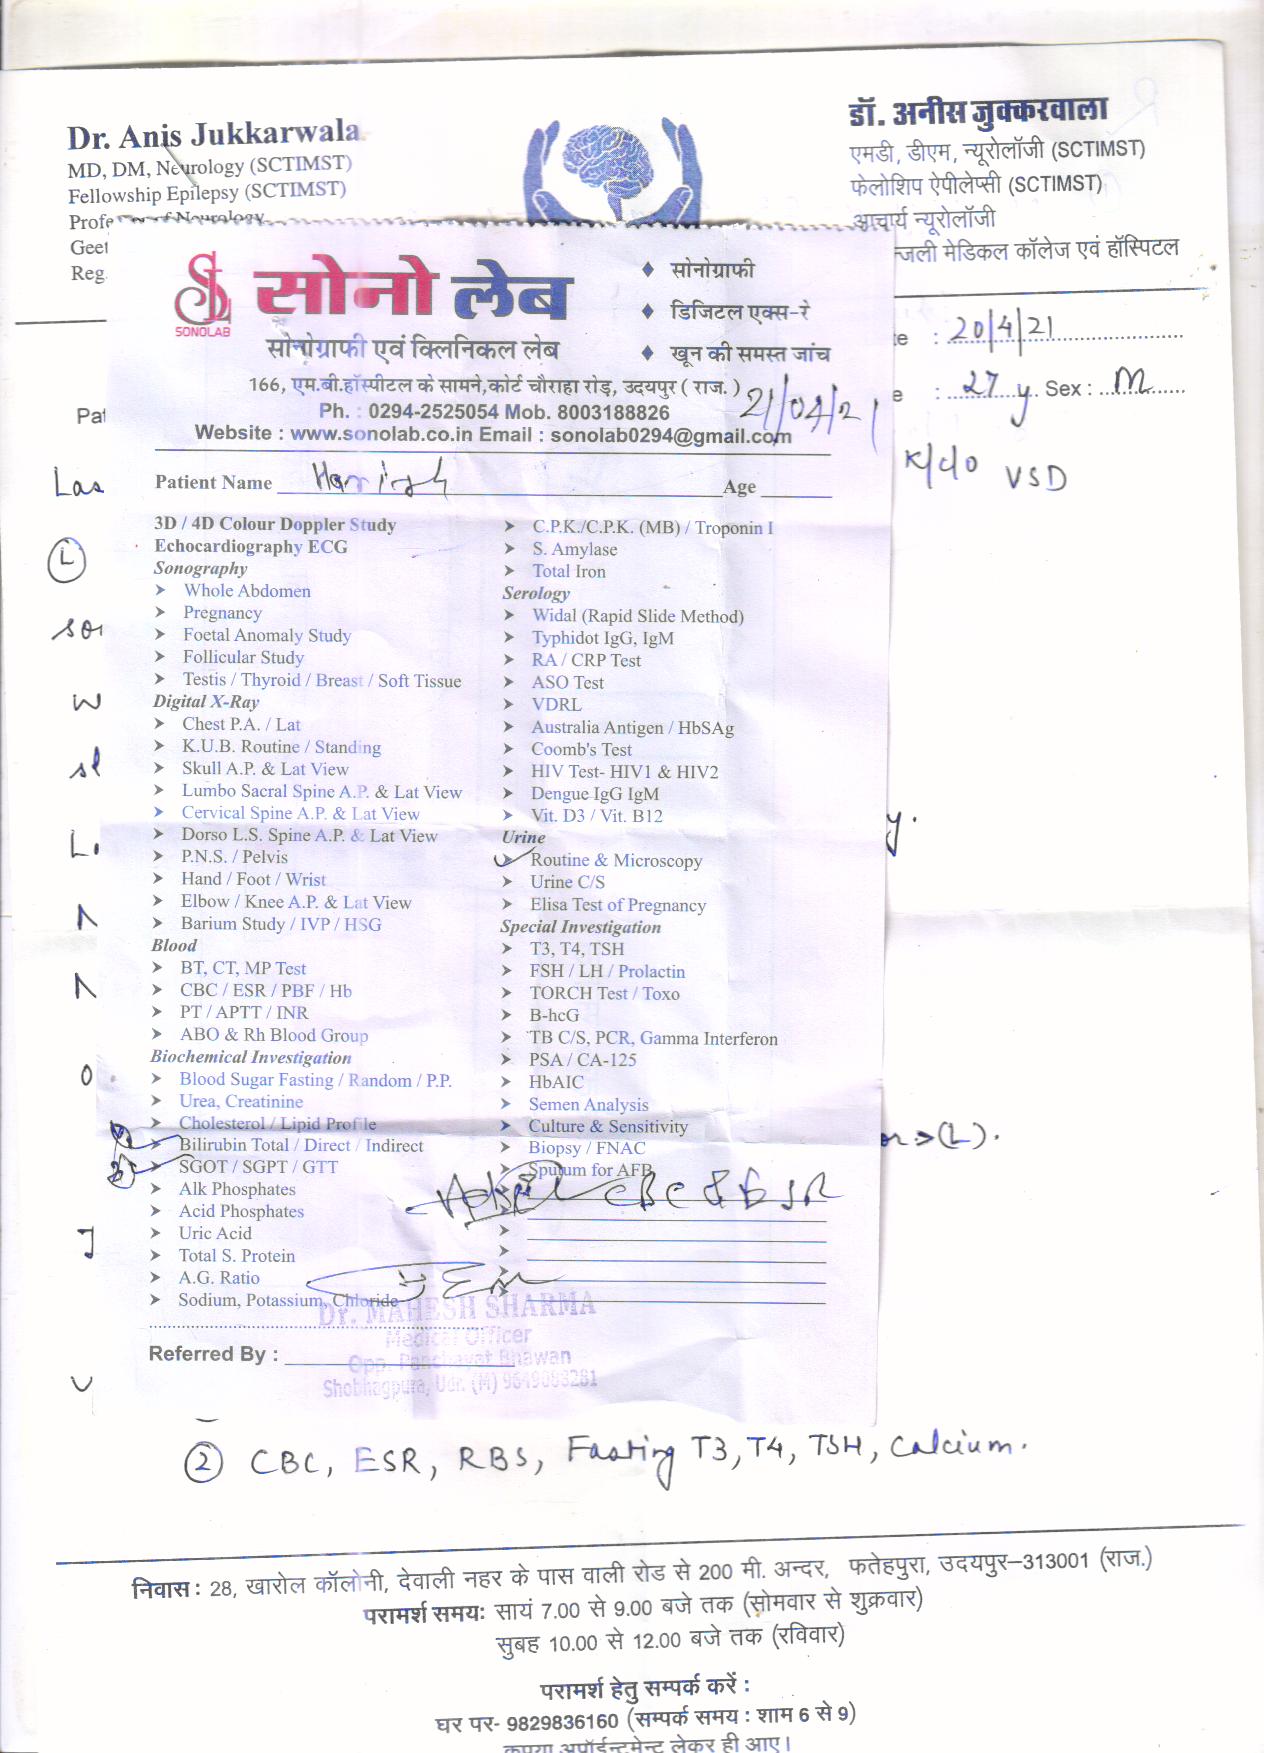 Dr. Anis Jukkarwala
MD, DM, Neurology (SCTIMST)
Fellowship Epilepsy (SCTIMST)
Profe of Neurology
Geet
Reg.
डॉ. अनीस जुक्करवाला
एमडी, डीएम, न्यूरोलॉजी (SCTIMST)
फेलोशिप ऐपीलेप्सी (SCTIMST)
आचार्य न्यूरोलॉजी
न्जली मेडिकल कॉलेज एवं हॉस्पिटल
te : 20/4/21
e : 27 y. Sex : M
K/c/o VSD
Pat
Las
L
sor
y.
or > (L).
SONOLAB
सोनो लेब
सोनोग्राफी एवं क्लिनिकल लेब
♦ सोनोग्राफी
♦ डिजिटल एक्स-रे
♦ खून की समस्त जांच
166, एम.बी.हॉस्पीटल के सामने,कोर्ट चौराहा रोड़, उदयपुर ( राज. )
21/04/21
Ph. : 0294-2525054 Mob. 8003188826
Website : www.sonolab.co.in Email : sonolab0294@gmail.com
Patient Name Harrish Age
3D / 4D Colour Doppler Study
Echocardiography ECG
Sonography
➤ Whole Abdomen
➤ Pregnancy
➤ Foetal Anomaly Study
➤ Follicular Study
➤ Testis / Thyroid / Breast / Soft Tissue
Digital X-Ray
➤ Chest P.A. / Lat
➤ K.U.B. Routine / Standing
➤ Skull A.P. & Lat View
➤ Lumbo Sacral Spine A.P. & Lat View
➤ Cervical Spine A.P. & Lat View
➤ Dorso L.S. Spine A.P. & Lat View
➤ P.N.S. / Pelvis
➤ Hand / Foot / Wrist
➤ Elbow / Knee A.P. & Lat View
➤ Barium Study / IVP / HSG
Blood
➤ BT, CT, MP Test
➤ CBC / ESR / PBF / Hb
➤ PT / APTT / INR
➤ ABO & Rh Blood Group
Biochemical Investigation
➤ Blood Sugar Fasting / Random / P.P.
➤ Urea, Creatinine
➤ Cholesterol / Lipid Profile
➤ Bilirubin Total / Direct / Indirect
➤ SGOT / SGPT / GTT
➤ Alk Phosphates
➤ Acid Phosphates
➤ Uric Acid
➤ Total S. Protein
➤ A.G. Ratio
➤ Sodium, Potassium, Chloride
➤ C.P.K./C.P.K. (MB) / Troponin I
➤ S. Amylase
➤ Total Iron
Serology
➤ Widal (Rapid Slide Method)
➤ Typhidot IgG, IgM
➤ RA / CRP Test
➤ ASO Test
➤ VDRL
➤ Australia Antigen / HbSAg
➤ Coomb's Test
➤ HIV Test- HIV1 & HIV2
➤ Dengue IgG IgM
➤ Vit. D3 / Vit. B12
Urine
➤ Routine & Microscopy
➤ Urine C/S
➤ Elisa Test of Pregnancy
Special Investigation
➤ T3, T4, TSH
➤ FSH / LH / Prolactin
➤ TORCH Test / Toxo
➤ B-hcG
➤ TB C/S, PCR, Gamma Interferon
➤ PSA / CA-125
➤ HbAIC
➤ Semen Analysis
➤ Culture & Sensitivity
➤ Biopsy / FNAC
➤ Sputum for AFB
CBC & ESR
Dr. MAHESH SHARMA
Medical Officer
Opp. Panchayat Bhawan
Shobhagpura, Udr. (M) 9649083281
Referred By :
2 CBC, ESR, RBS, Fasting T3, T4, TSH, Calcium.
निवास : 28, खारोल कॉलोनी, देवाली नहर के पास वाली रोड से 200 मी. अन्दर, फतेहपुरा, उदयपुर–313001 (राज.)
परामर्श समय: सायं 7.00 से 9.00 बजे तक (सोमवार से शुक्रवार)
सुबह 10.00 से 12.00 बजे तक (रविवार)
परामर्श हेतु सम्पर्क करें :
घर पर- 9829836160 (सम्पर्क समय : शाम 6 से 9)
कृपया अपॉईन्टमेन्ट लेकर ही आए।